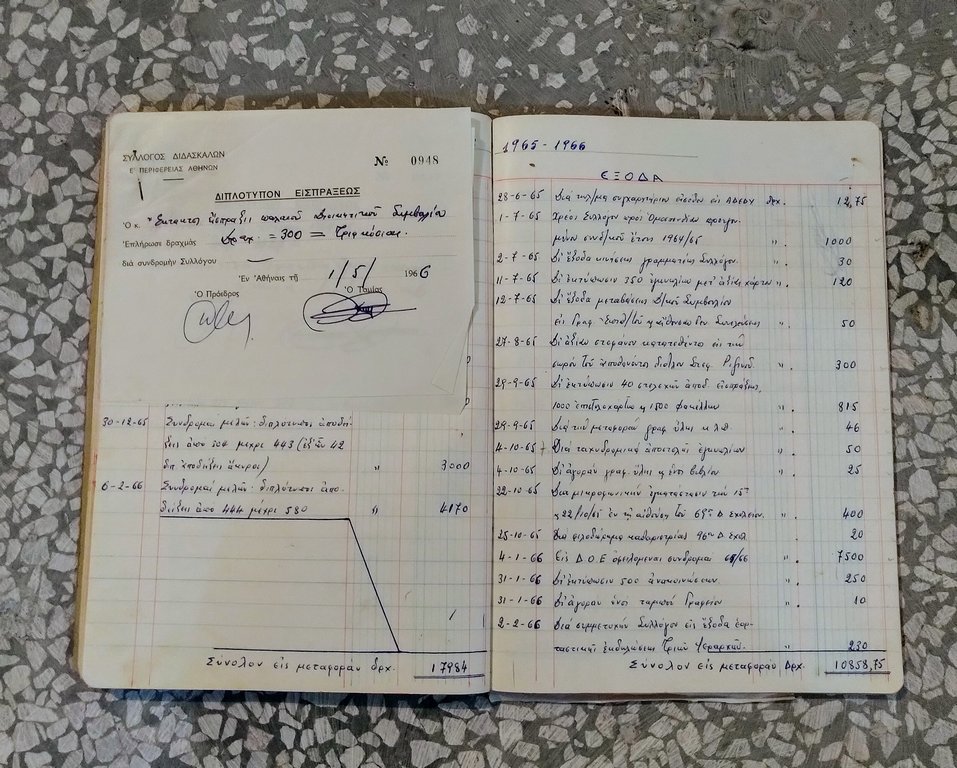 ΣΥΛΛΟΓΟΣ ΔΙΔΑΣΚΑΛΩΝ
Ε΄ ΠΕΡΙΦΕΡΕΙΑΣ ΑΘΗΝΩΝ
№ 0948
ΔΙΠΛΟΤΥΠΟΝ ΕΙΣΠΡΑΞΕΩΣ
Ὁ κ. Ἔκτακτος εἴσπραξις παλαιοῦ Διοικητικοῦ Συμβουλίου
Ἐπλήρωσε δραχμὰς Δραχ. = 300 = Τριακόσιαι
διὰ συνδρομὴν Συλλόγου
Ἐν Ἀθήναις τῇ 1/5/ 1966
Ὁ Πρόεδρος Ὁ Ταμίας
30-12-65 Συνδρομαὶ μελῶν: διπλότυποι ἀποδεί-
ξεις ἀπὸ 304 μέχρι 443 (ἐξ ὧν 42
ἀποδείξεις ἄκυροι) " 3000
6-2-66 Συνδρομαὶ μελῶν: διπλότυποι ἀπο-
δείξεις ἀπὸ 444 μέχρι 580 " 4170
Σύνολον εἰς μεταφορὰν δρχ. 17984
1965 - 1966
ΕΞΟΔΑ
28-6-65 Διὰ συγχαρτήριον εἰς ΑΔΕΔΥ Δρχ. 12,75
1-7-65 Χρέος Συλλόγου πρὸς Ὁμοσπονδίαν
ἔτους 1964/65 " 1000
2-7-65 Δι' ἔξοδα κινήσεως γραμματέως Συλλόγου " 30
11-7-65 Δι' ἐκτύπωσιν 350 ἐγκυκλίων μετ' ἀξίας χάρτου " 120
12-7-65 Δι' ἔξοδα μεταβάσεως Δ/κοῦ Συμβουλίου
εἰς Γραφ. " 50
27-8-65 Δι' ἀξίαν στεφάνου κατατεθέντος εἰς τὴν
σορὸν τοῦ ἀποθανόντος " 300
29-9-65 Δι' ἐκτύπωσιν 40 στελεχῶν ἀποδ. εἰσπράξεως,
1000 ἐπιστολοχάρτων κ 1500 φακέλλων " 815
29-9-65 Διὰ τὴν μεταφορὰν γραφ. ὕλης κ.λ.π. " 46
4-10-65 Διὰ ταχυδρομικὰ ἀποστολῆς ἐγκυκλίων " 50
4-10-65 Δι' ἀγορὰν γραφ. ὕλης κ ἑνὸς βιβλίου " 25
22-10-65 Διὰ μικροφωνικὴν ἐγκατάστασιν τὴν 15
κ 22/10/65 ἐν τῇ αἰθούσῃ τοῦ 69ου Δ. Σχολείου " 400
25-10-65 Διὰ φιλοδώρημα καθαριστρίας 96ου Δ. Σχολ. 20
4-1-66 Εἰς Δ.Ο.Ε ὀφειλόμεναι συνδρομαὶ 65/66 " 7500
31-1-66 Δι' ἐκτύπωσιν 500 ἀνακοινώσεων " 250
31-1-66 Δι' ἀγορὰν ἑνὸς ταμποὺ Γραφείου " 10
2-2-66 Διὰ συμμετοχὴν Συλλόγου εἰς ἔξοδα ἑορ-
ταστικῆς ἐκδηλώσεως Τριῶν Ἱεραρχῶν " 230
Σύνολον εἰς μεταφορὰν Δρχ. 10858,75